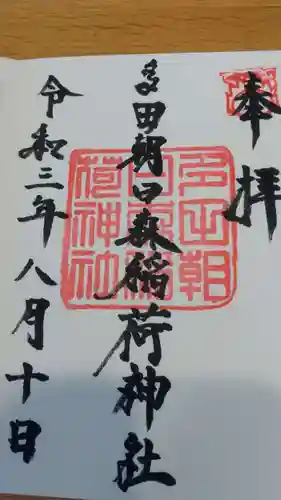 奉拝
多田朝日森稲荷神社
令和三年八月十日
多田朝
日森稲
荷神社